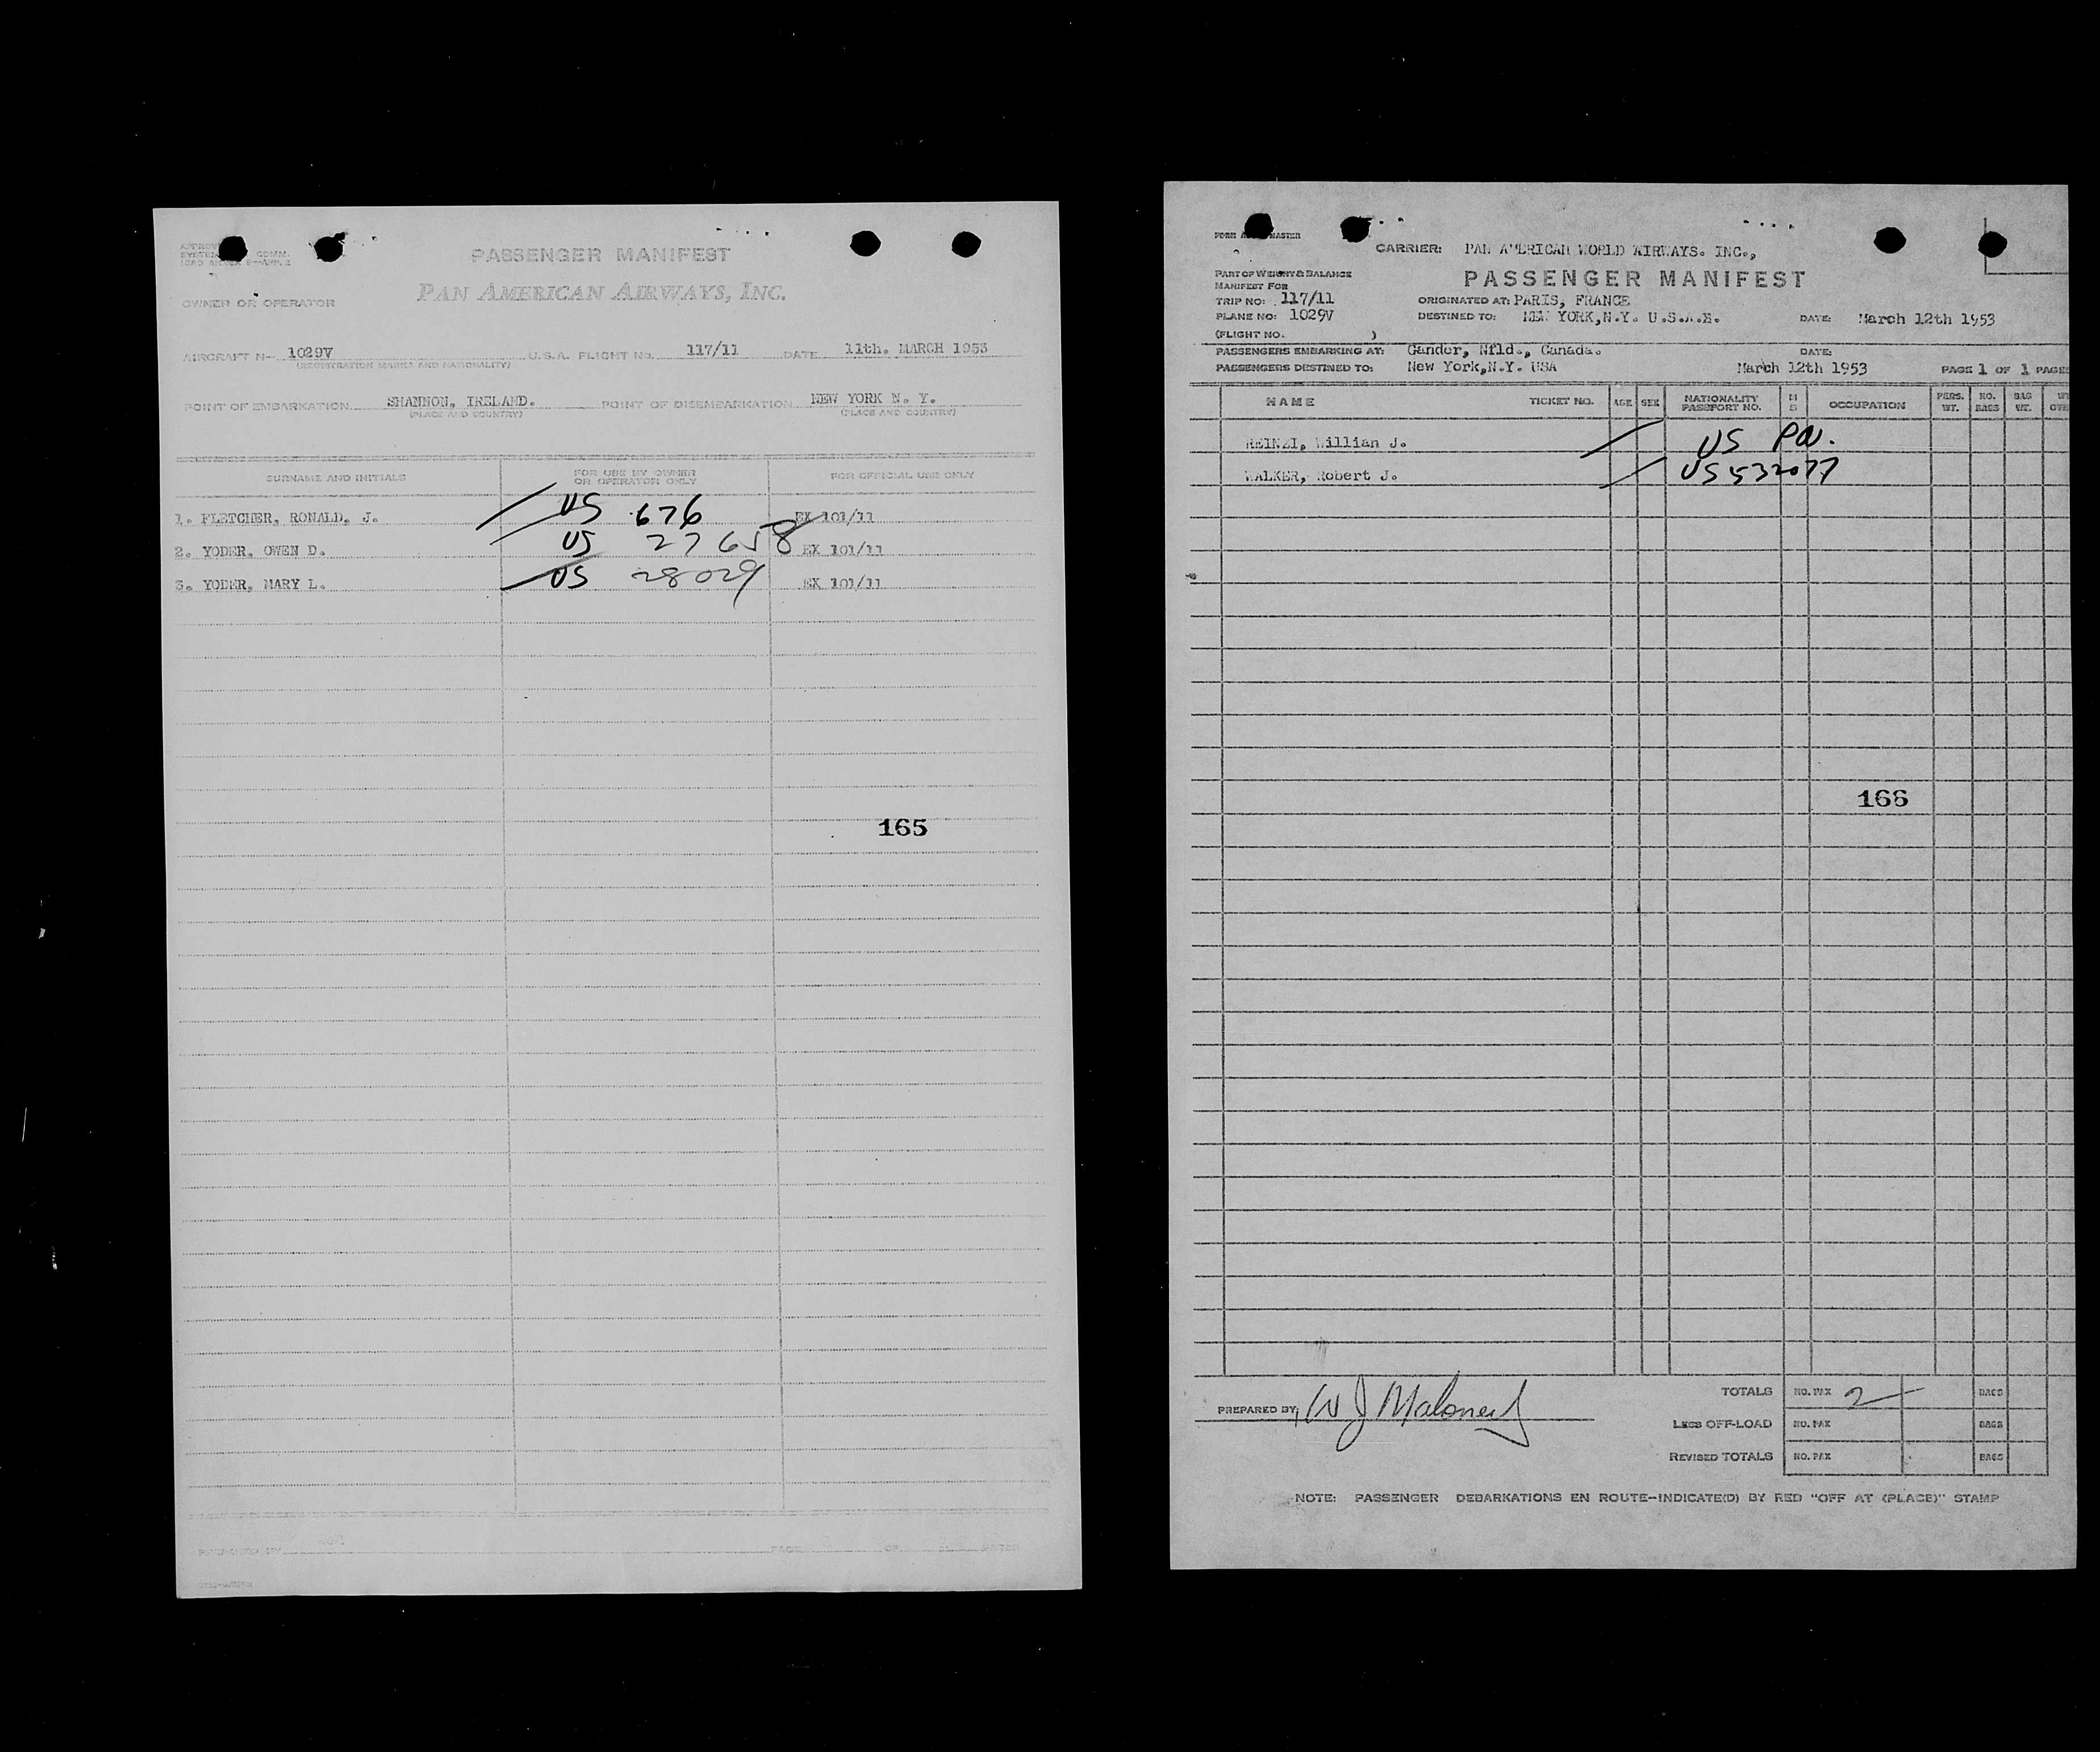 PASSENGER MANIFEST
PAN AMERICAN AIRWAYS, INC.
OWNER OR OPERATOR
AIRCRAFT N- 1029V U.S.A. FLIGHT NO. 117/11 DATE 11th. MARCH 1953
(REGISTRATION MARKS AND NATIONALITY)
POINT OF EMBARKATION SHANNON, IRELAND. POINT OF DISEMBARKATION NEW YORK N. Y.
(PLACE AND COUNTRY) (PLACE AND COUNTRY)
SURNAME AND INITIALS FOR USE BY OWNER OR OPERATOR ONLY FOR OFFICIAL USE ONLY
1. FLETCHER, RONALD, J. US 676 EX 101/11
2. YODER, OWEN D. US 27658 EX 101/11
3. YODER, MARY L. US 28029 EX 101/11
165
PREPARED BY PAGE OF PAGES
CARRIER: PAN AMERICAN WORLD AIRWAYS. INC.,
PASSENGER MANIFEST
PART OF WEIGHT & BALANCE
MANIFEST FOR
TRIP NO: 117/11 ORIGINATED AT: PARIS, FRANCE
PLANE NO: 1029V DESTINED TO: NEW YORK,N.Y. U.S.A. DATE: March 12th 1953
(FLIGHT NO. )
PASSENGERS EMBARKING AT: Gander, Nfld., Canada. DATE:
PASSENGERS DESTINED TO: New York,N.Y. USA March 12th 1953 PAGE 1 OF 1 PAGES
NAME TICKET NO. AGE SEX NATIONALITY PASSPORT NO. M S OCCUPATION PERS. WT. NO. BAGS BAG WT.
REINZI, Willian J. US
WALKER, Robert J. US 532077
166
PREPARED BY: W J Maloney
TOTALS NO. PAX 2 BAGS
LESS OFF-LOAD NO. PAX BAGS
REVISED TOTALS NO. PAX BAGS
NOTE: PASSENGER DEBARKATIONS EN ROUTE-INDICATE(D) BY RED "OFF AT (PLACE)" STAMP